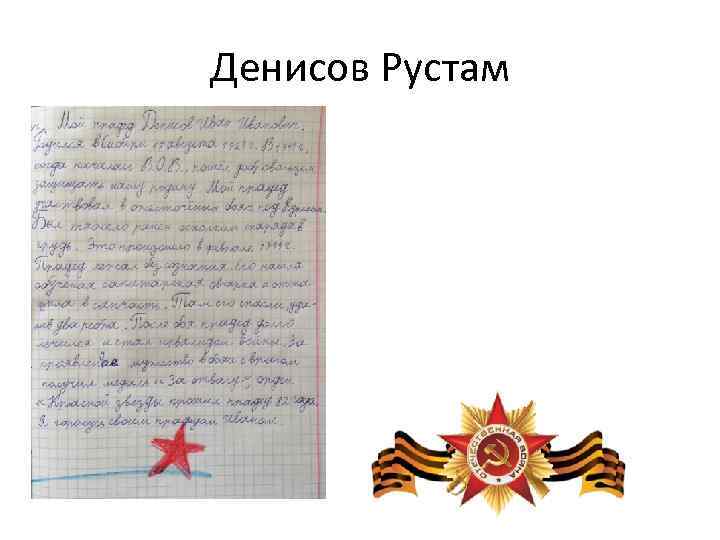 Денисов Рустам
Мой прадед Денисов Иван Иванович.
родился в Сибири 17 августа 1921 г. В 1941 г.,
когда началась В.О.В., пошёл добровольцем
защищать нашу родину Мой прадед
участвовал в ожесточённых боях под
Был тяжело ранен осколком снаряда в
грудь. Это произошло в феврале
Прадед лежал без сознания. Его нашла
обученая санитарская овчарка и
в санчасть. Там его спасли, уда-
лив два ребра. После боя прадед долго
лечился и стал инвалидом войны. За
мужество в боях с врагом
получил медаль «За отвагу», орден
«Красной звезды прожил прадед 82 года.
Я горжусь своим прадедом Иваном.
ОТЕЧЕСТВЕННАЯ ВОЙНА